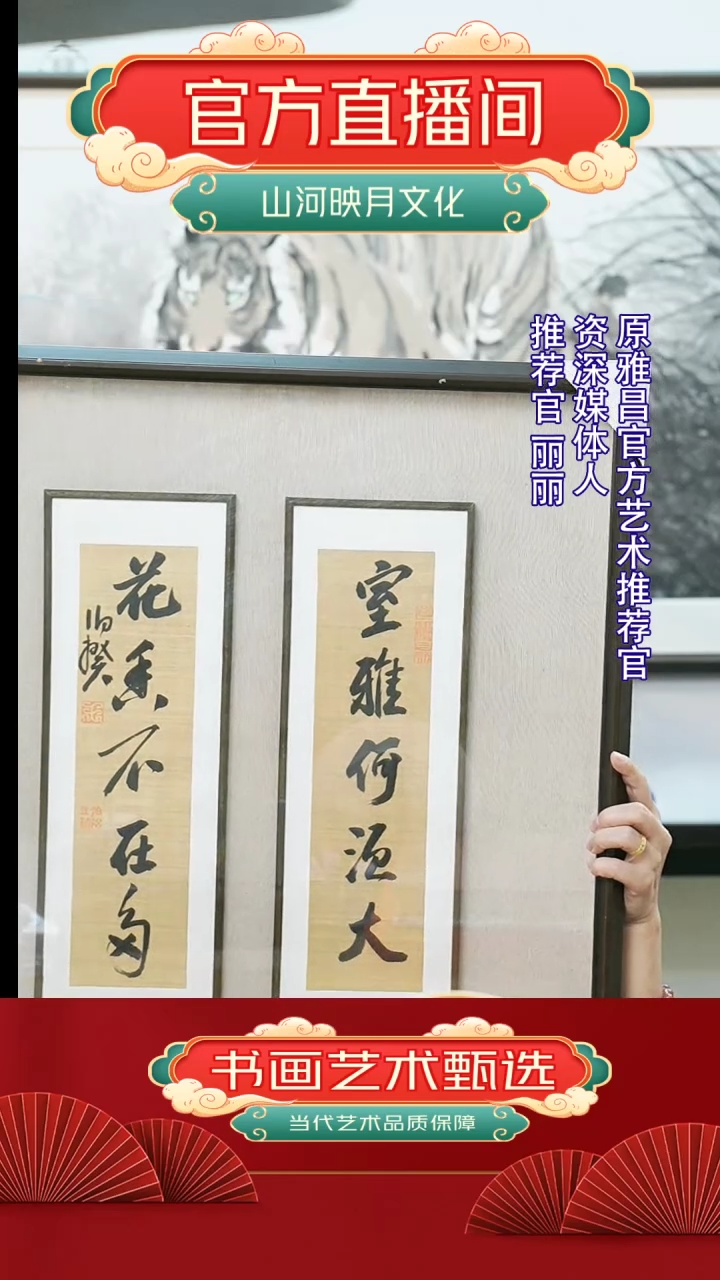 官方直播间
山河映月文化
原雅昌官方艺术推荐官
资深媒体人
推荐官 丽丽
室雅何须大
花香不在多
伯揆
书画艺术甄选
当代艺术品质保障